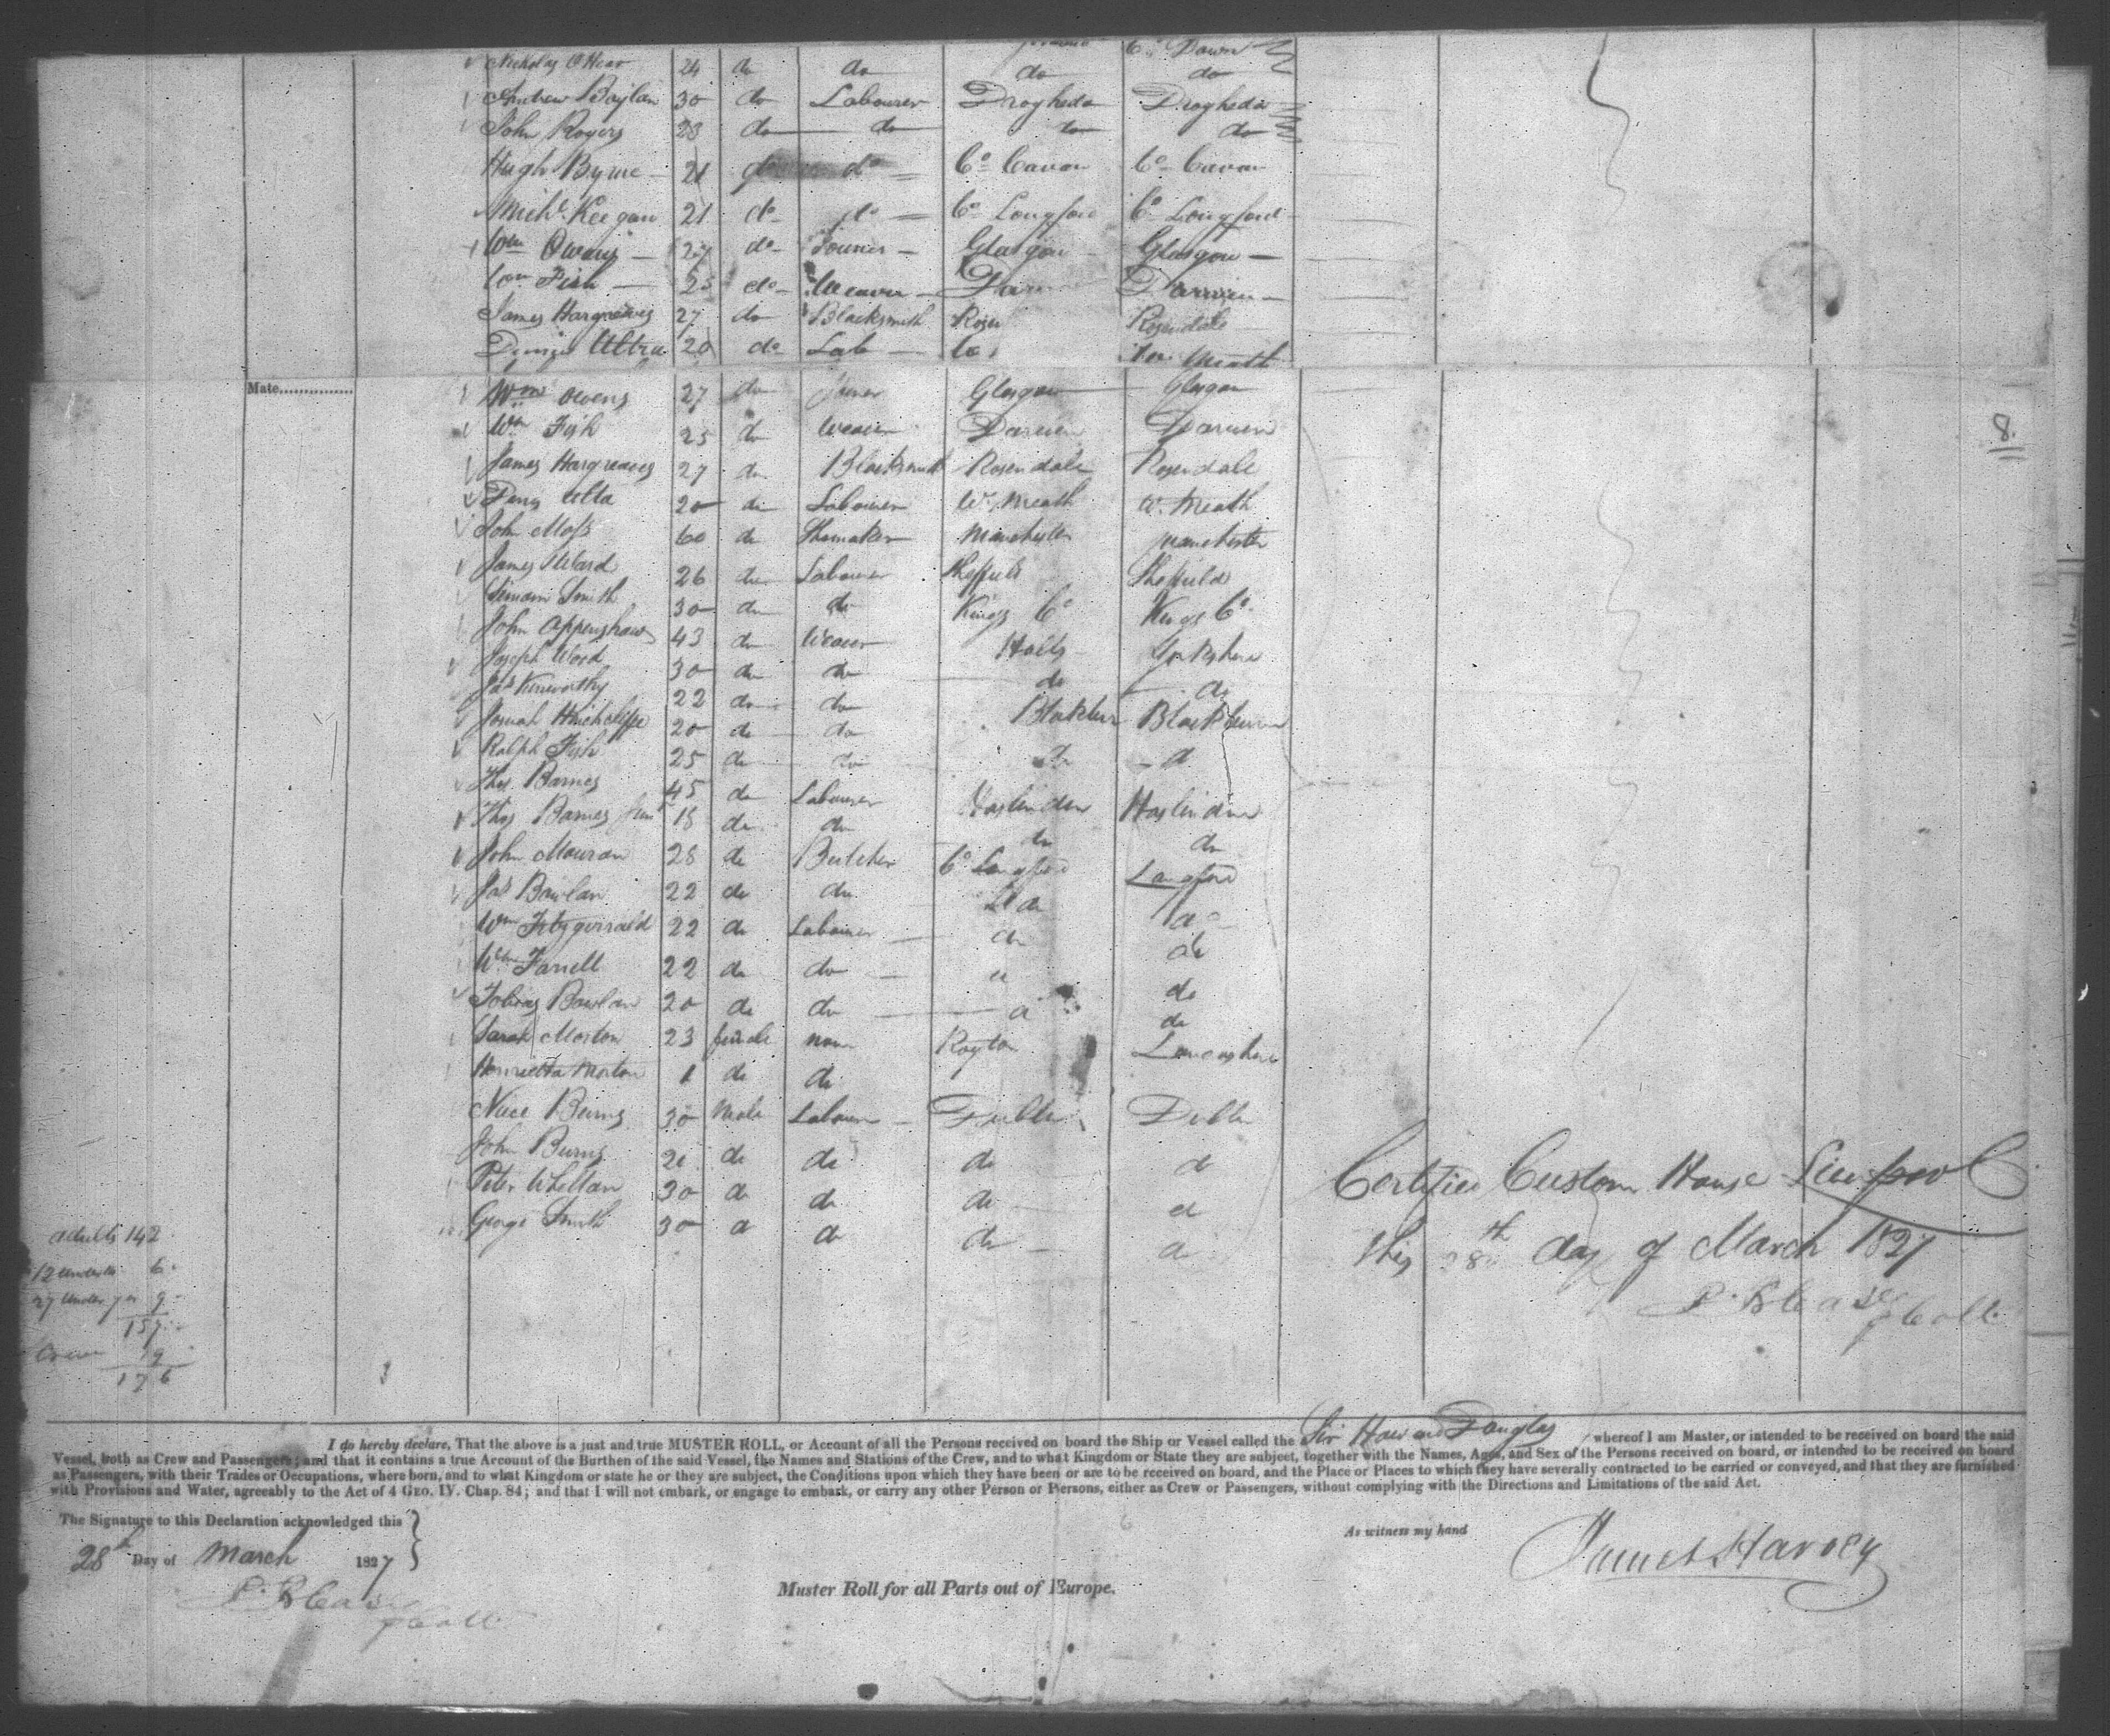 Co Down
Nicholas O Hear 24 do do do do
Andrew Boylan 30 do Labourer Drogheda Drogheda
John Rogers 23 do do do do
Hugh Byrne 21 do do Co Cavan Co Cavan
Michl Keegan 21 do do Co Longford Co Longford
Wm Owens 27 do Joiner Glasgow Glasgow
Wm Fish 25 do Weaver Dar Darwen
James Hargreaves 27 do Blacksmith Rosen Rosendale
20 do Lab Meath
Mate...............
Wm Owens 27 do Joiner Glasgow Glasgow
Wm Fish 25 do Weaver Darwen Darwen
James Hargreaves 27 do Blacksmith Rosendale Rosendale
Ulta 20 do Labourer W. Meath W. Meath
John Moss 60 do Shomaker Manchester Manchester
James Ward 26 do Labourer Sheffield Sheffield
Simion Smith 30 do do Kings Co Kings Co
John Oppenshaw 43 do Weaver Yorkshire
Joseph Wood 30 do do do do
Jas Kenworthy 22 do do Blakburn Blackburn
Josiah Hinchcliffe 20 do do
Ralph Fish 25 do do do do
Thos Barnes 45 do Labourer Haslinden Haslinden
Thos Barnes Junr 18 do do do do
John Mouran 28 do Butcher Co Longford Longford
Jas Bowlan 22 do do do do
Wm Fitzgerrald 22 do Labourer do do
Wm Farrell 22 do do do do
Tobias Bowlan 20 do do do do
Sarah Morton 23 female none Royton Lancashire
Henrietta Morton 1 do do
Burns 30 Male Labourer Dublin Dublin
John Burns 21 do do do do
Peter Whellan 30 do do do do
George Smith 30 do do do do
8.
Adults 142
12 Under 14 6
27 Under 7 yr 9
157
Crew 19
176
Certified Custom House Liverpool
this 28th day of March 1827
I do hereby declare, That the above is a just and true MUSTER ROLL, or Account of all the Persons received on board the Ship or Vessel called the Sir Howard Douglas whereof I am Master, or intended to be received on board the said
Vessel, both as Crew and Passengers; and that it contains a true Account of the Burthen of the said Vessel, the Names and Stations of the Crew, and to what Kingdom or State they are subject, together with the Names, Ages, and Sex of the Persons received on board, or intended to be received on board
as Passengers, with their Trades or Occupations, where born, and to what Kingdom or state he or they are subject, the Conditions upon which they have been or are to be received on board, and the Place or Places to which they have severally contracted to be carried or conveyed, and that they are furnished
with Provisions and Water, agreeably to the Act of 4 GEO. IV. Chap. 84; and that I will not embark, or engage to embark, or carry any other Person or Persons, either as Crew or Passengers, without complying with the Directions and Limitations of the said Act.
The Signature to this Declaration acknowledged this
28th Day of March 1827
As witness my hand
James Harvey
Muster Roll for all Parts out of Europe.